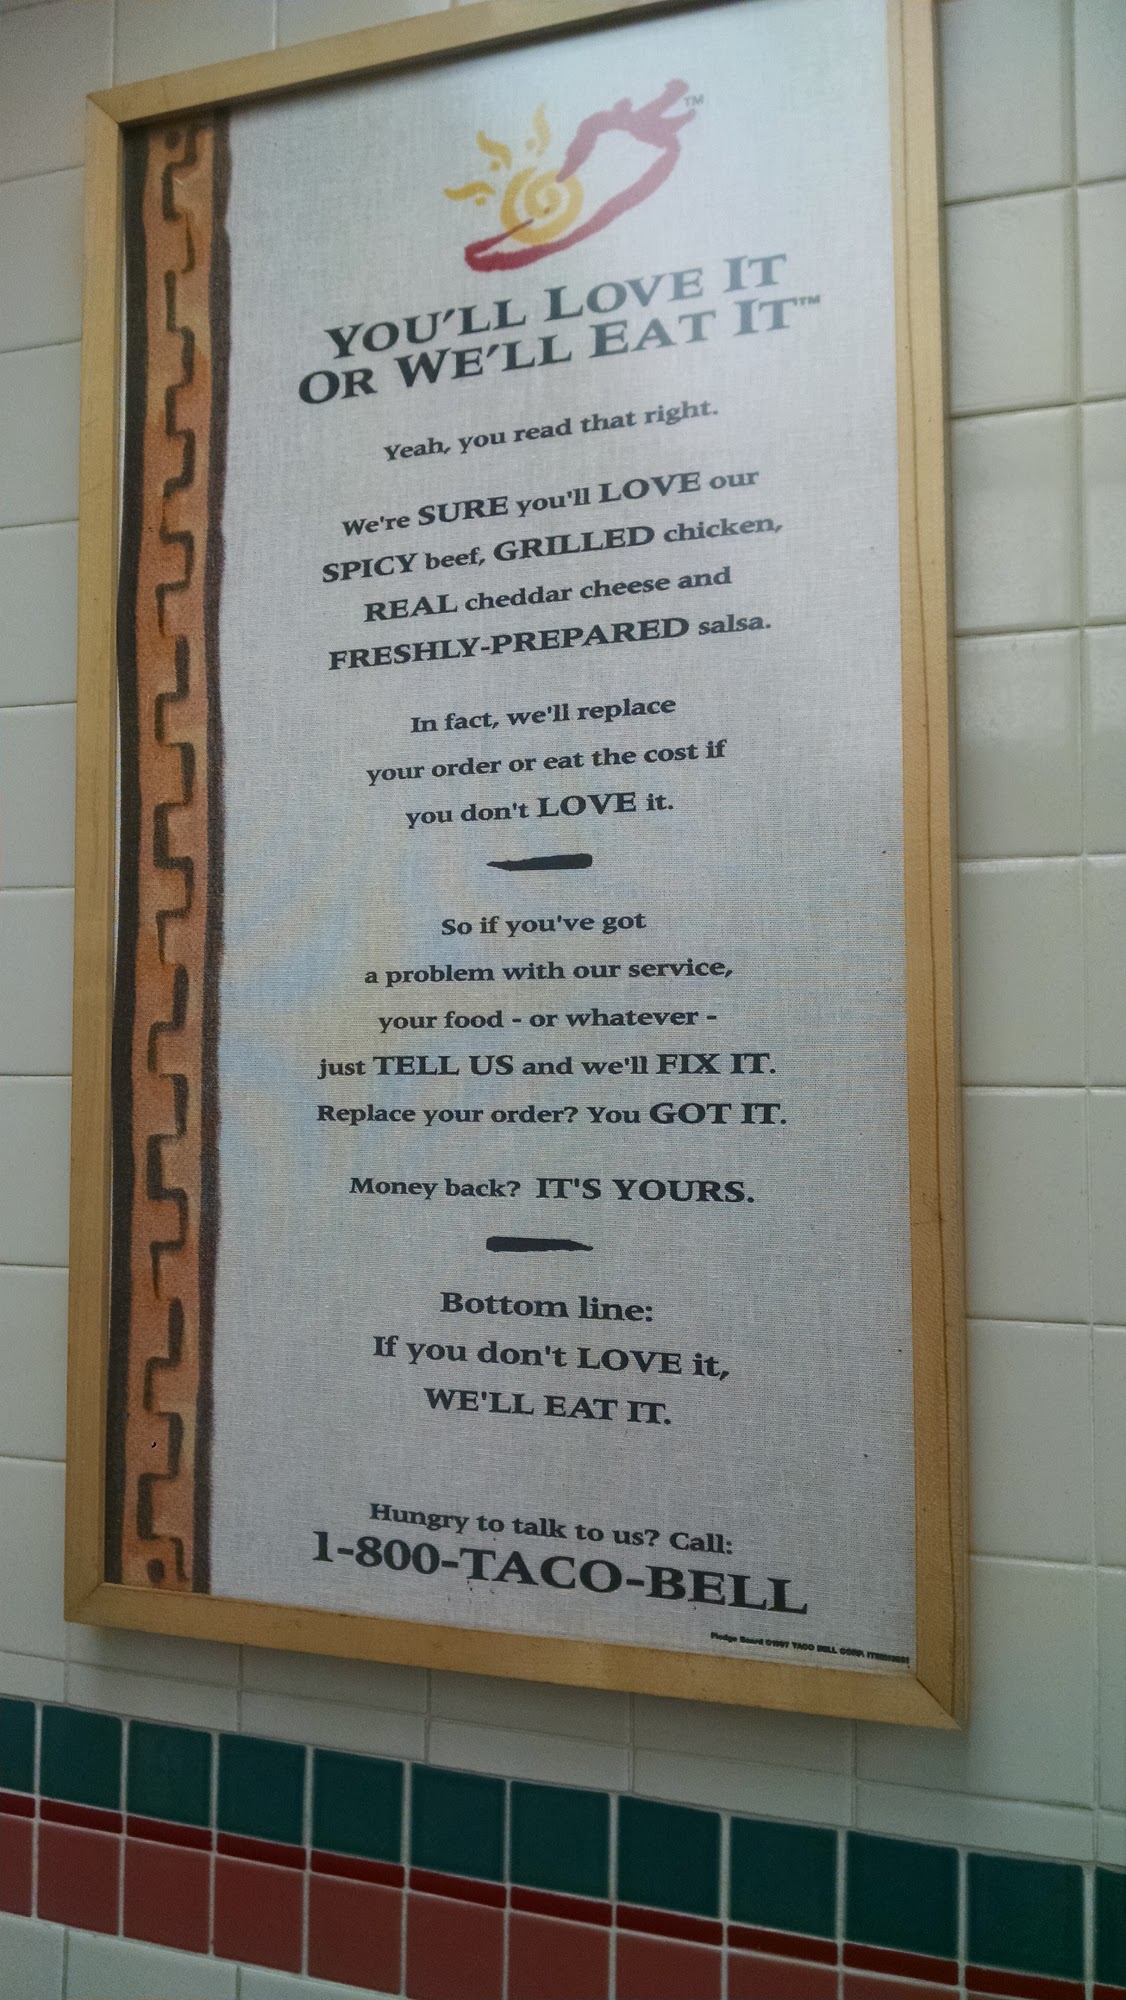 TM
YOU'LL LOVE IT
OR WE'LL EAT IT™
Yeah, you read that right.
We're SURE you'll LOVE our
SPICY beef, GRILLED chicken,
REAL cheddar cheese and
FRESHLY-PREPARED salsa.
In fact, we'll replace
your order or eat the cost if
you don't LOVE it.
So if you've got
a problem with our service,
your food - or whatever -
just TELL US and we'll FIX IT.
Replace your order? You GOT IT.
Money back? IT'S YOURS.
Bottom line:
If you don't LOVE it,
WE'LL EAT IT.
Hungry to talk to us? Call:
1-800-TACO-BELL
Pledge Board ©1997 TACO BELL CORP.